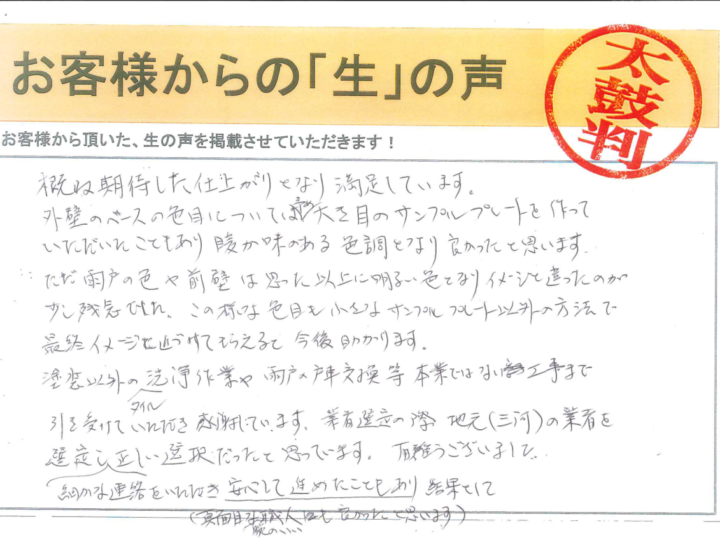 お客様からの「生」の声
太鼓判
お客様から頂いた、生の声を掲載させていただきます！
概ね期待した仕上がりとなり満足しています。
外壁のベースの色目については大き目のサンプルプレートを作って
いただいたこともあり暖か味のある色調となり良かったと思います。
ただ雨戸の色や前壁は思った以上に明るい色となりイメージと違ったのが
少し残念でした。この様な色目も小さなサンプルプレート以外の方法で
最終イメージに近づけてもらえると今後助かります。
塗装以外の洗浄作業や雨戸の戸車交換等本業ではない工事まで
タイル
引き受けていただき感謝しています。業者選定の際地元(三河)の業者を
選定し正しい選択だったと思っています。有難うございました。
細かな連絡をいただき安心して進めたこともあり結果として
(真面目な職人にも良かったと思います)
腕のいい